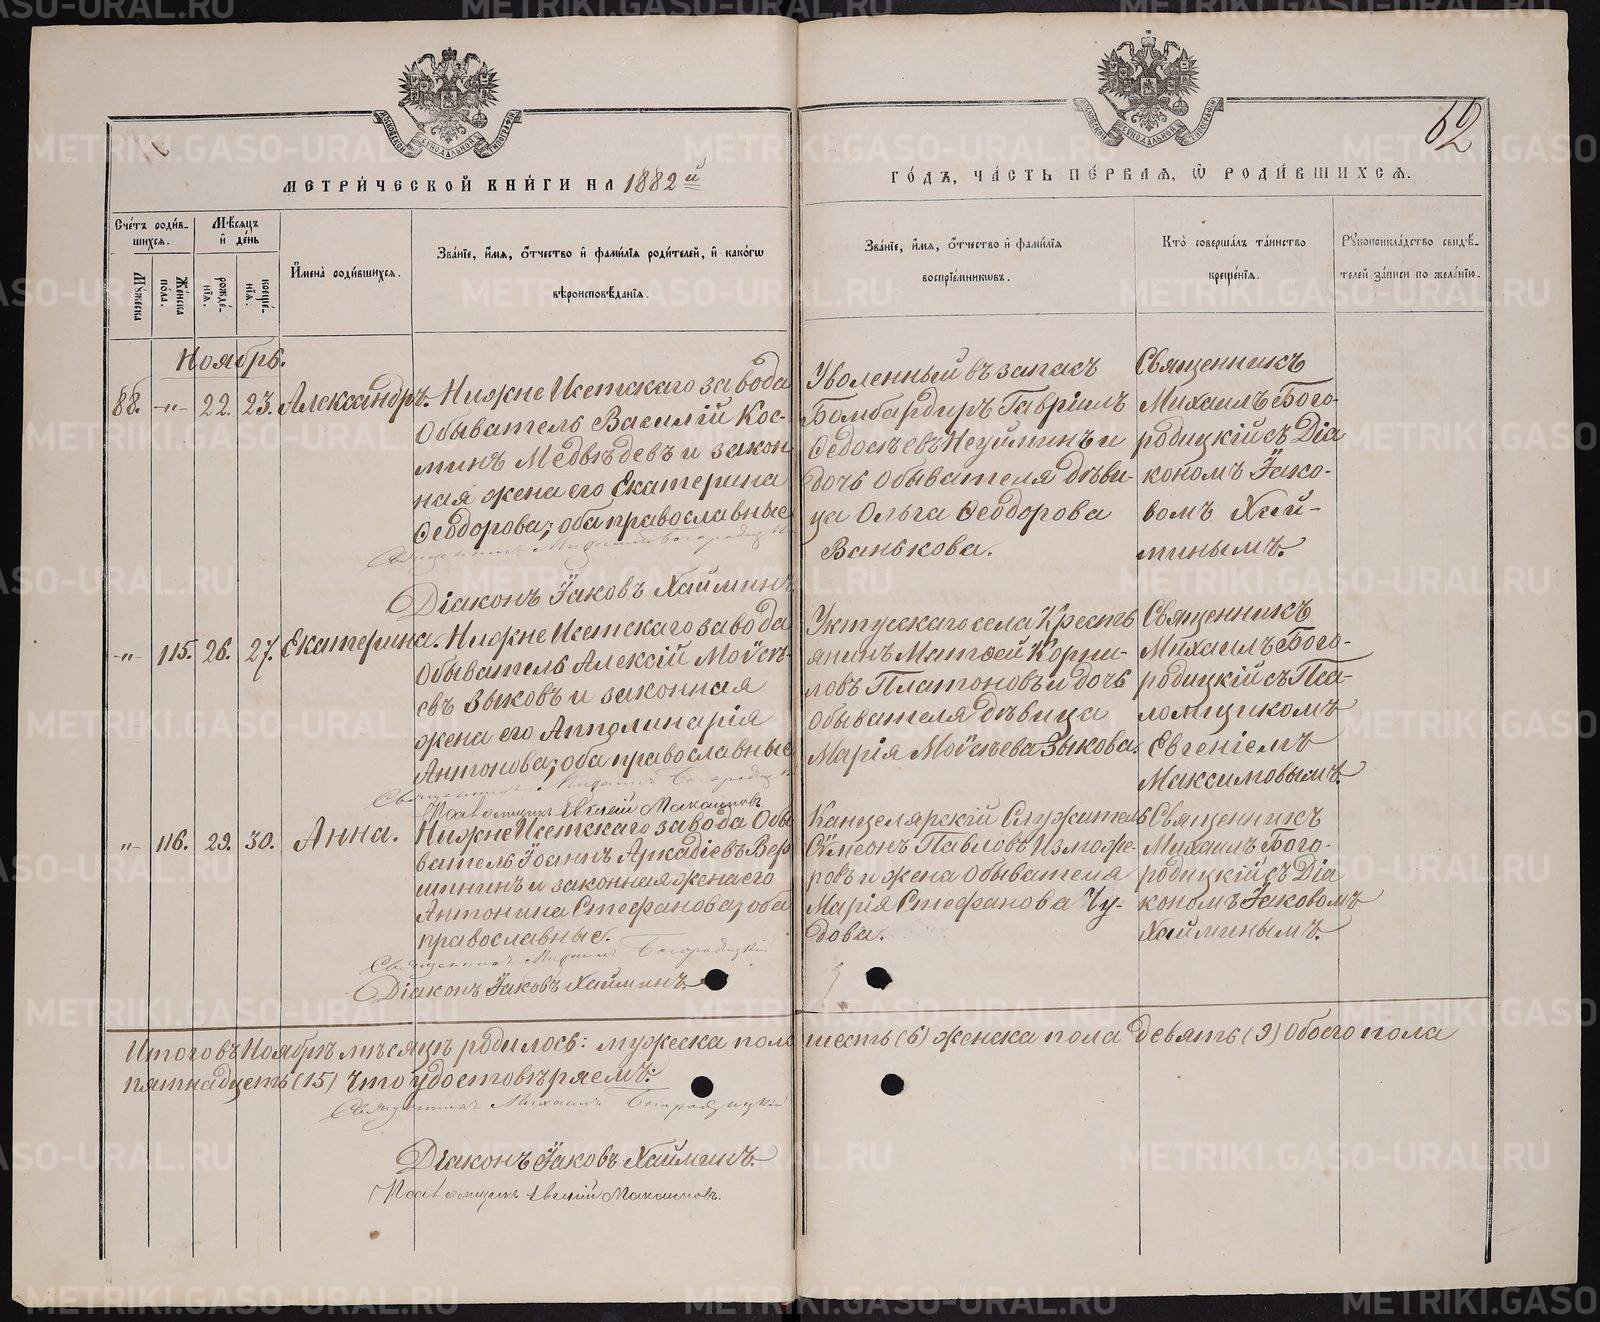 МЕТРИ́ЧЕСКОЙ КНИ́ГИ НА 1882й
ГО́ДЪ, ЧА́СТЬ ПЕ́РВАЯ, Ѡ РОДИ́ВШИХСѦ.
62
Сче́тъ роди́в-
шихся.
Мꙋ́жеска
Же́нска
по́ла.
Мѣ́сяцъ
и де́нь
рожде́-
нїя.
креще́-
нїя.
И҆мена̀ роди́вшихся.
Зва́нїе, и҆́мя, ѻ҆́тчество и҆ фами́лїя роди́телей, и҆ како́гѡ
вѣроисповѣ́данїя.
Зва́нїе, и҆́мя, ѻ҆́тчество и҆ фами́лїя
воспрїе́мникѡвъ.
Кто̀ соверша́лъ та́инство
креще́нїя.
Рꙋкоприкла́дство свидѣ́-
телей за́писи по жела́нїю.
Ноябрь.
88. -„- 22. 23. Александръ.
Нижне Исетскаго завода
Обыватель Василій Кос-
минъ Медвѣдевъ и закон
ная жена его Екатерина
Ѳеодорова; оба православные
Священникъ Михаилъ Богородицкій
Діаконъ Іаковъ Хайминъ
Уволенный въ запасъ
Бомбардиръ Гавріилъ
Ѳедосѣевъ Неуйминъ и
дочь Обывателя дѣви-
ца Ольга Ѳеодорова
Ванькова.
Священникъ
Михаилъ Бого-
родицкій съ Діа
кономъ Іако-
вомъ Хай-
минымъ.
-„- 115. 26. 27. Екатерина.
Нижне Исетскаго завода
Обыватель Алексій Моѵсѣ-
евъ Зыковъ и законная
жена его Апполинарія
Антонова; оба православные
Священникъ Михаилъ Богородицкій
Псаломщикъ Евгеній Максимовъ
Уктусскаго села Кресть
янинъ Матѳей Корни-
ловъ Платоновъ и дочь
Обывателя дѣвица
Марія Моѵсѣева Зыкова.
Священникъ
Михаилъ Бого-
родицкій съ Пса-
ломщикомъ
Евгеніемъ
Максимовымъ.
„- 116. 29. 30. Анна.
Нижне Исетскаго завода Обы
ватель Іоаннъ Аркадіевъ Вер
шининъ и законная жена его
Антонина Стефанова; оба
православные.
Священникъ Михаилъ Богородицкій
Діаконъ Іаковъ Хайминъ.
Канцелярскій Служитель
Сѵмеонъ Павловъ Изможе-
ровъ и жена Обывателя
Марія Стефанова Чу-
дова.
Священникъ
Михаилъ Бого-
родицкій съ Діа
кономъ Іаковомъ
Хайминымъ.
Итого въ Ноябрѣ мѣсяцѣ родилось: мужеска пола шесть (6) женска пола девять (9) обоего пола
пятнадцеть (15) что удостовѣряемъ:
Священникъ Михаилъ Богородицкій
Діаконъ Іаковъ Хайминъ.
Псаломщикъ Евгеній Максимовъ.
METRIKI.GASO-URAL.RU